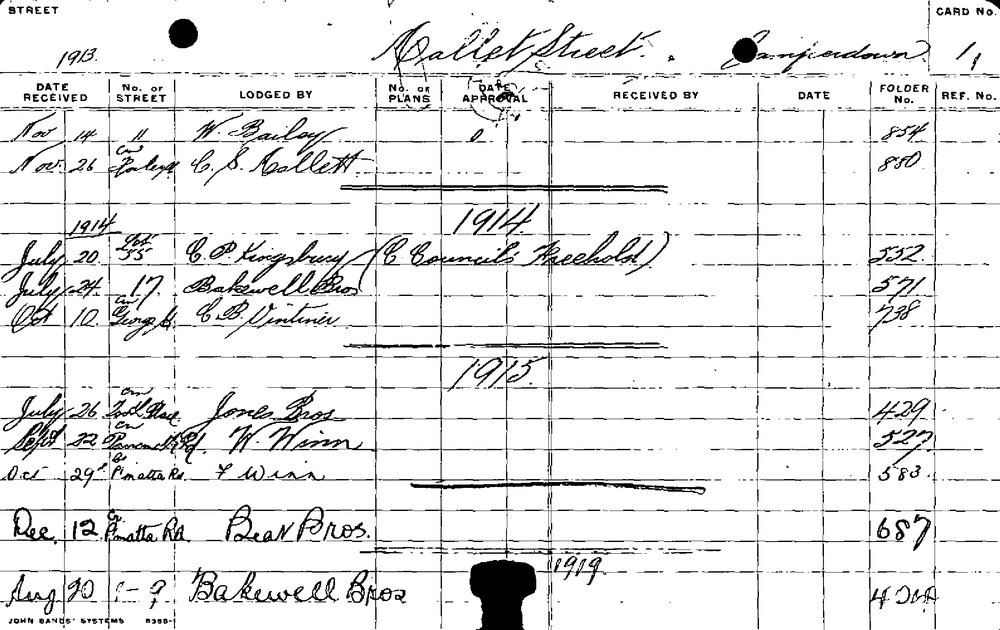 STREET CARD No.
1913. Mallet Street. Camperdown 1,
DATE RECEIVED No. OF STREET LODGED BY No. OF PLANS DATE APPROVAL RECEIVED BY DATE FOLDER No. REF. No.
Nov 14 11 W. Bailey 0 854
Nov. 26 cnr C. S. Mallett 880
1914
1914
July 20. Lot 55 C P Kingsbury (C Councils Freehold) 552
July 24. 17. Bakewell Bros 571
Oct 10. cnr George St C. B. Vintiner 738
1915
July 26 cnr Jones Bros 429
Sept 22 cnr Parramatta Rd. W. Winn 527
Oct 29 P'matta Rd. F Winn 583.
Dec. 12 Cr. P'matta Rd. Bear Bros. 687
1919.
Aug 20 1-9 Bakewell Bros
JOHN SANDS' SYSTEMS